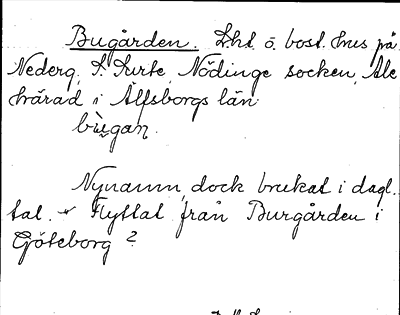 Bugården. Lht o. bost. hus på
Nederg. S. Surte, Nödinge socken, Ale
härad i Älfsborgs län
bùgan.
Nynamn, dock brukat i dagl.
tal. Flyttat från Burgården i
Göteborg?